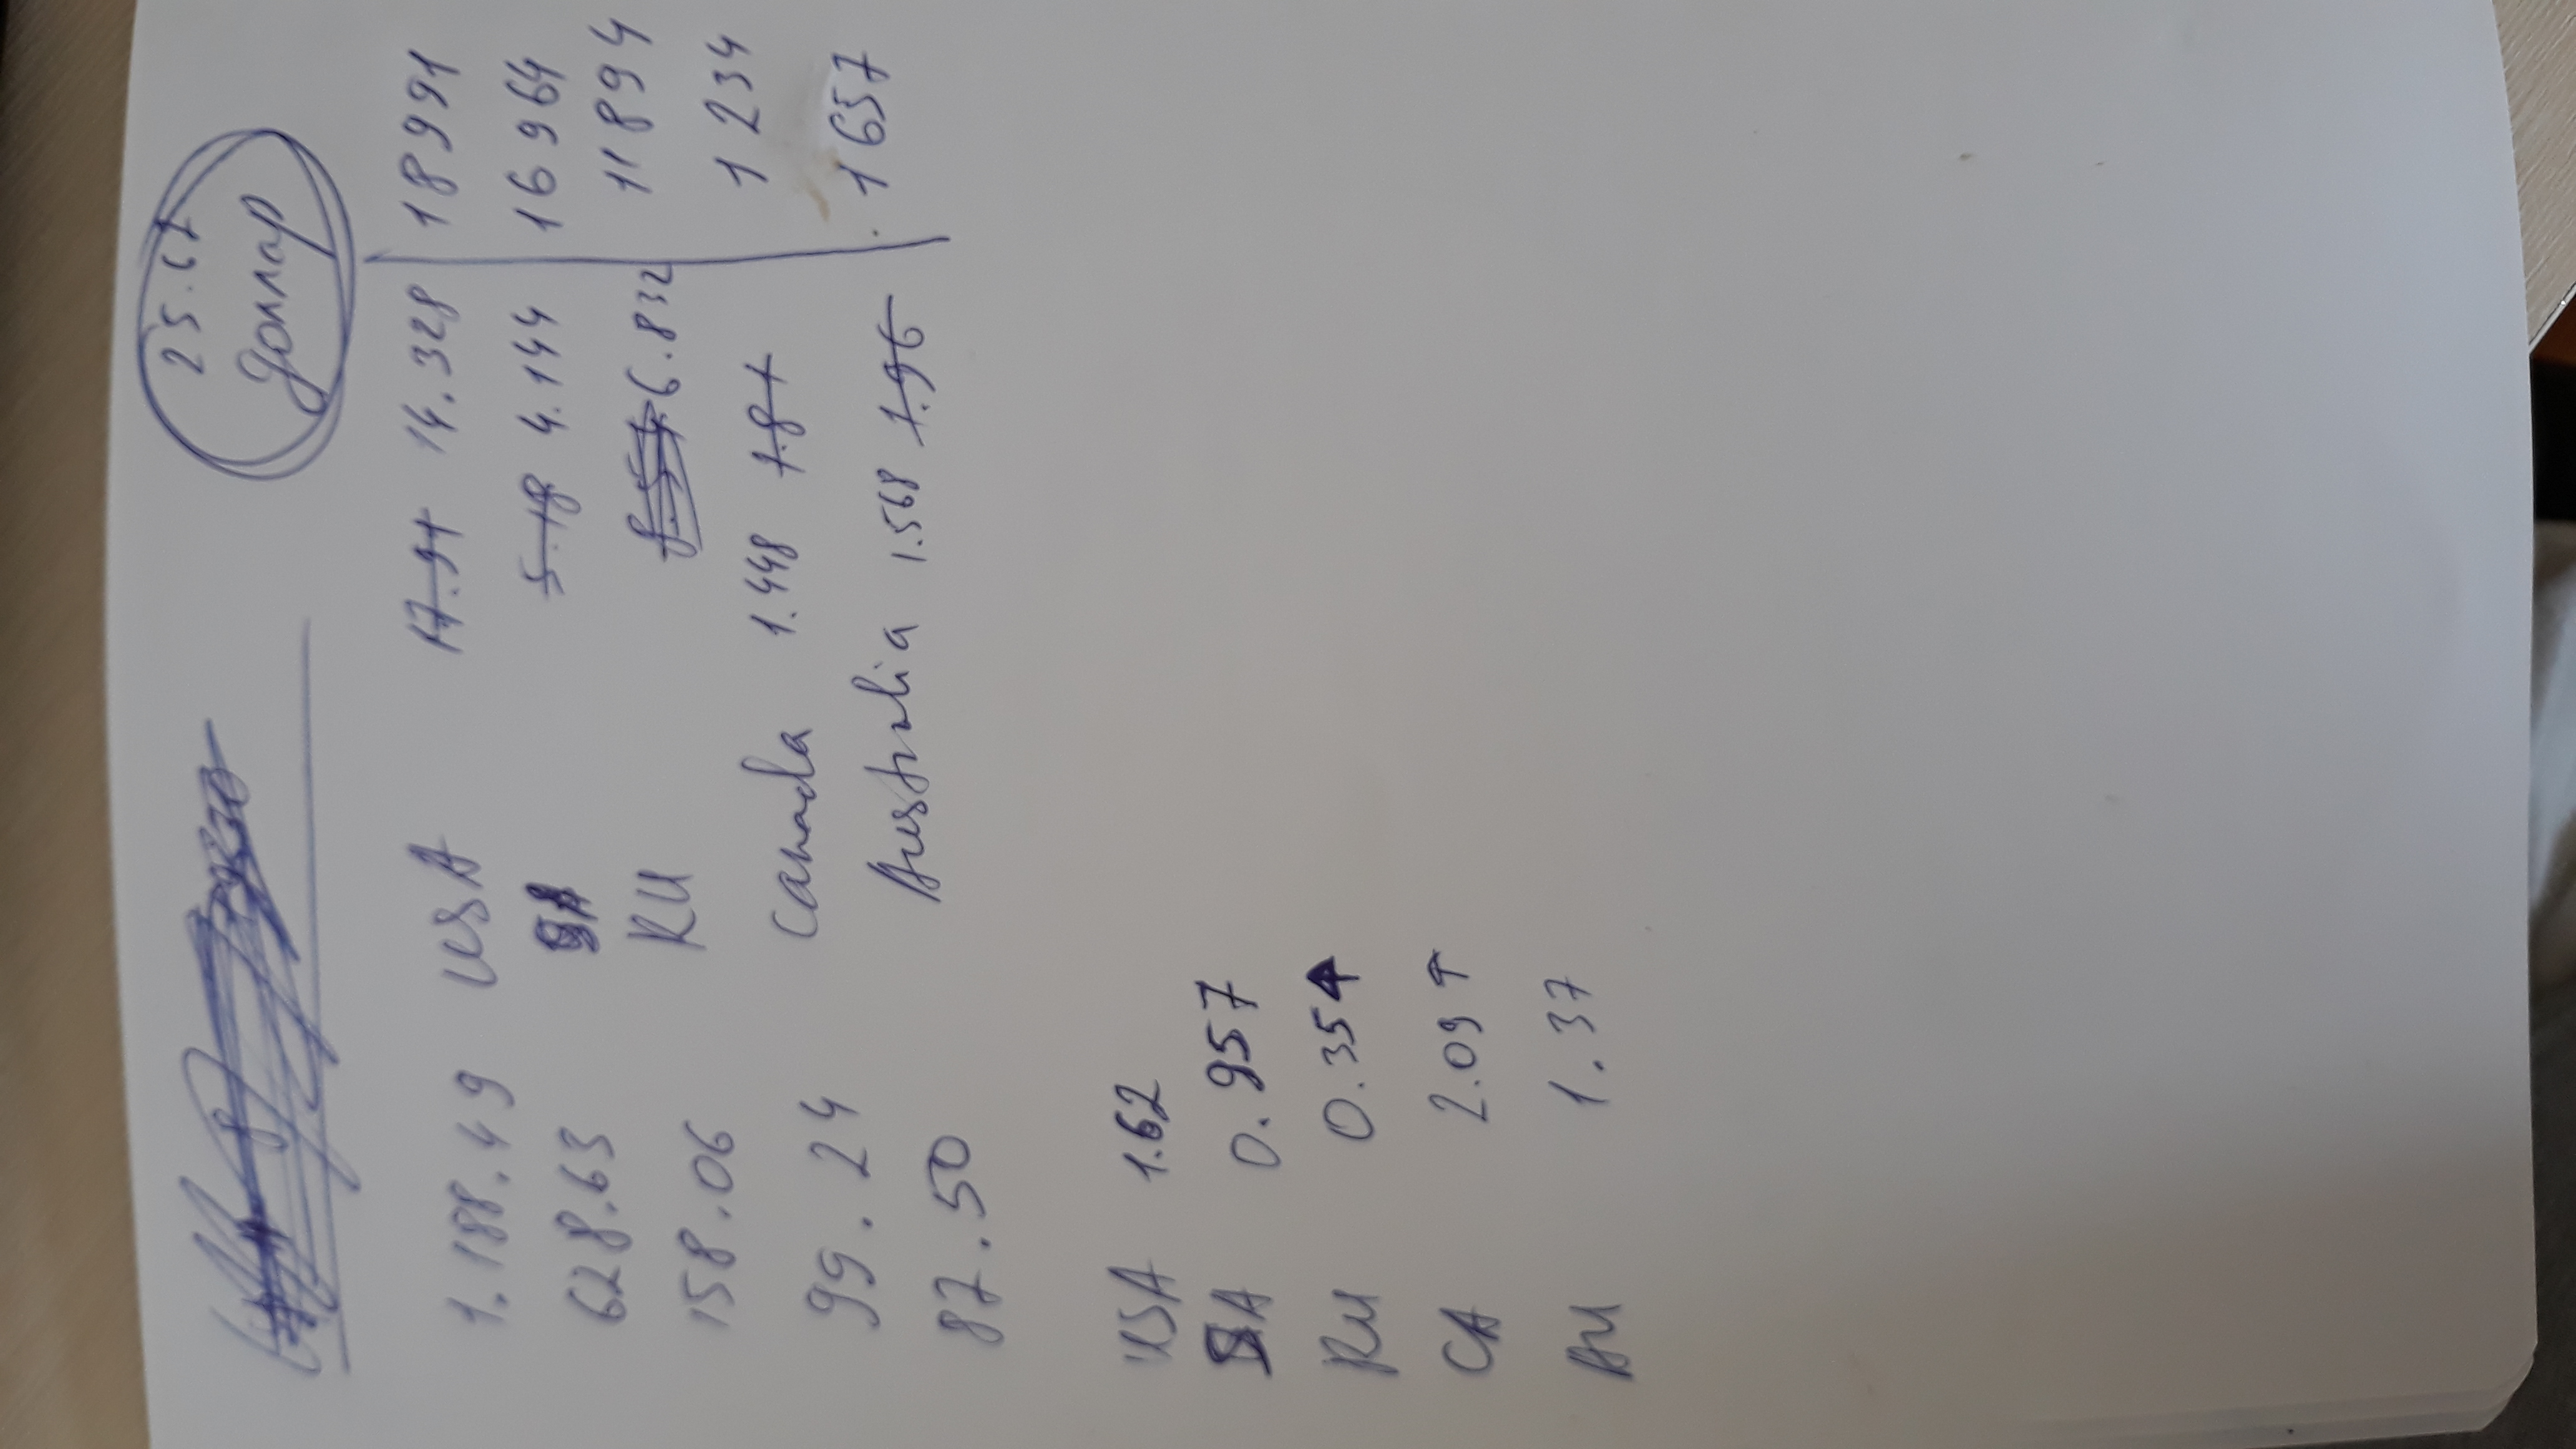 25.67
доллар
1.188.49 USA 17.91 14.328 18991
628.63 SA 5.18 4.144 16964
158.06 RU 8.54 6.832 11894
99.24 Canada 1.448 1.81 1234
87.50 Australia 1.568 1.96 1657
USA 1.62
SA 0.957
RU 0.35↑
CA 2.09↑
AU 1.37